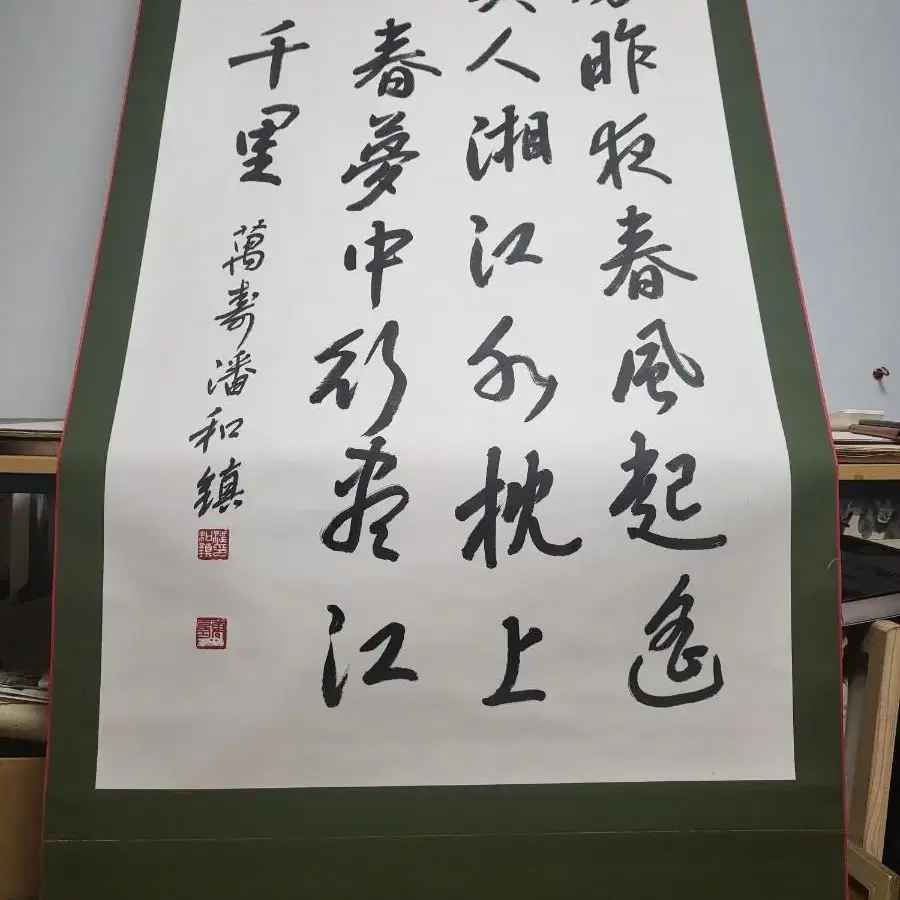 昨夜春風起遙
人湘江水枕上
春夢中行盡江
千里
萬壽潘和鎮